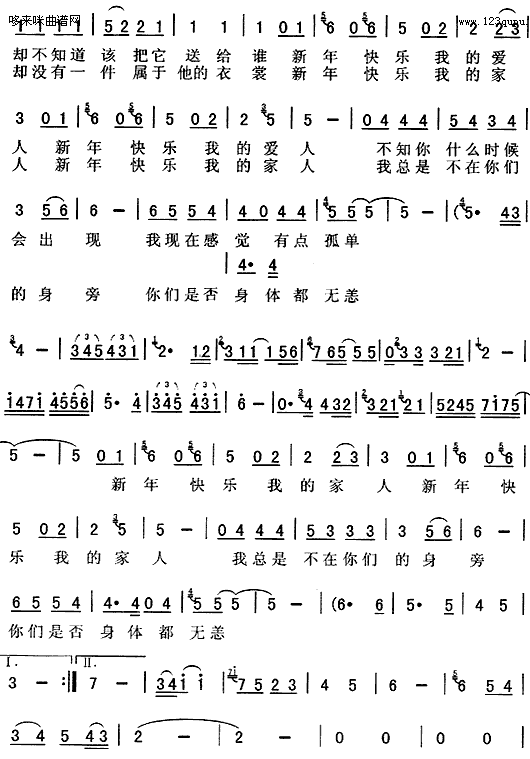 哆来咪曲谱网
www.123qupu.
1 1 1 1 | 5 2 2 1 | 1 1 1 1 | 5 2 2 1 | 1 5 0 1 | 6 0 6 | 5 0 2 | 2 2 3
却不知道该把它送给谁 新年快乐我的爱
却没有一件属于他的衣裳 新年快乐我的家
3 0 1 | 6 0 6 | 5 0 2 | 2 5 | 5 - | 0 4 4 4 | 5 4 3 4
人 新年快乐我的爱人 不知你什么时候
人 新年快乐我的家人 我总是不在你们
3 5 6 | 6 - | 6 5 5 4 | 4 0 4 4 | 5 5 5 | 5 - | (5· 4 3
会出现 我现在感觉有点孤单
4· 4
的身旁 你们是否身体都无恙
4 - | 3 4 5 4 3 1 | 2· 1 2 | 3 1 1 1 5 6 | 7 6 5 5 5 | 0 2 3 3 3 2 1 | 2 -
1 4 7 1 4 5 5 6 | 5· 4 | 3 4 5 4 3 1 | 6 - | 0· 3 4 4 3 2 | 3 2 2 1 2 1 | 5 2 4 5 7 1 7 5
5 - | 5 0 1 | 6 0 6 | 5 0 2 | 2 2 3 | 3 0 1 | 6 0 6
新年快乐我的家人新年快
5 0 2 | 2 5 | 5 - | 0 4 4 4 | 5 3 3 3 | 3 5 6 | 6 -
乐我的家人 我总是不在你们的身旁
6 5 5 4 | 4· 4 0 4 | 5 5 5 | 5 - | (6· 6 | 5· 5 | 4 5
你们是否身体都无恙
I. II.
3 - :| 7 - | 3 4 1 1 | 7 5 2 3 | 4 5 | 6 - | 6 5 4
3 4 5 4 3 | 2 - | 2 - | 0 0 | 0 0